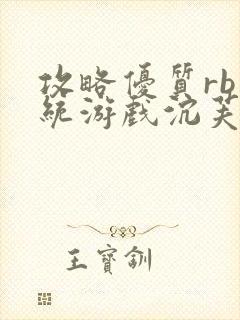 攻略優質rb
統游戲沉芙
王寶釧